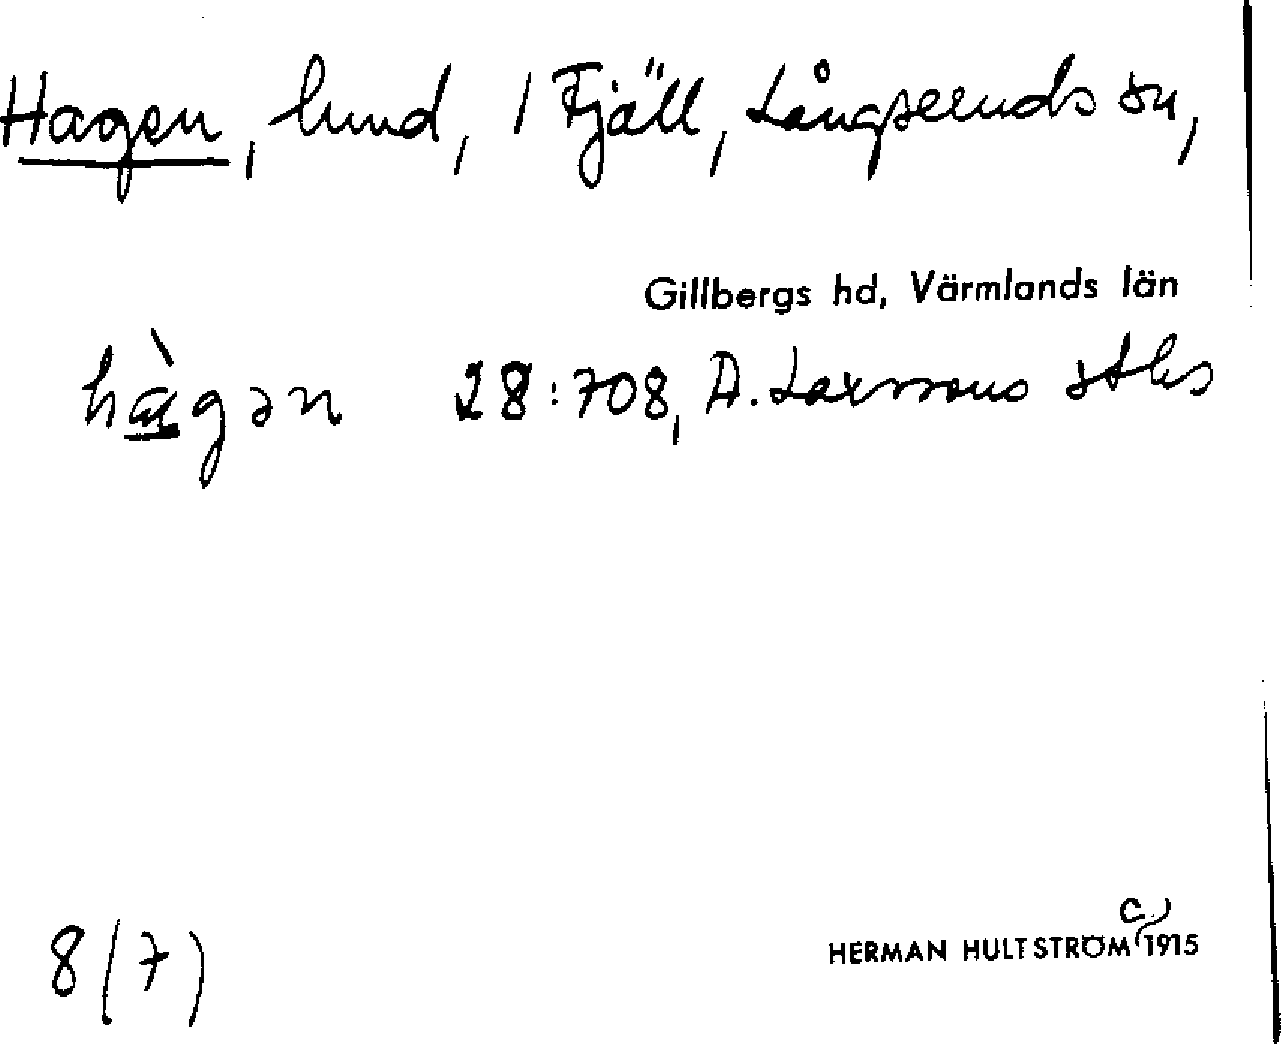 Hagen, lund, 1 Fjäll, Långseruds sn,
Gillbergs hd, Värmlands län
hàgən 28:708, A. Larssons stks
8(7)
HERMAN HULTSTRÖM c. 1915